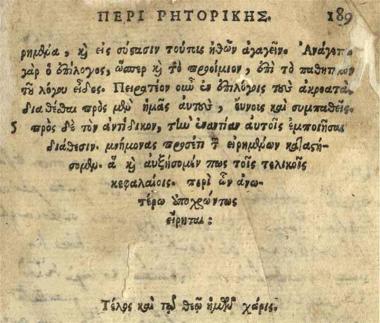 ΠΕΡΙ ΡΗΤΟΡΙΚΗΣ. 189
ρημθμα, κ εἰς σύστασιν τούτοις ἠθῶν ἀγαγεῖν.
γὰρ ὁ ἐπίλογος, ὥσπερ κ τὸ προοίμιον, ἐπὶ τὸ παθητικὸν
τοῦ λόγου εἶδος. Πειρατέον οὖν ἐν ἐπιλόγοις τοὺς ἀκροατὰς
διαθέσθαι πρὸς μὲν ἡμᾶς αὐτοὺς, εὔνοις καὶ συμπαθεῖς.
5 πρὸς δὲ τὸν ἀντίδικον, τὴν ἐναντίαν αὐτοῖς ἐμποιῆσαι
διάθεσιν. μνήμονας προσέτι τῶν εἰρημένων καταστή-
σομεν. ἃ κ αὐξήσομέν πως τοῖς τελικοῖς
κεφαλαίοις. περὶ ὧν ἀνω-
τέρω ὑποχρώντως
εἴρηται:
Τέλος καὶ τῷ θεῷ ἡμῶν χάρις.